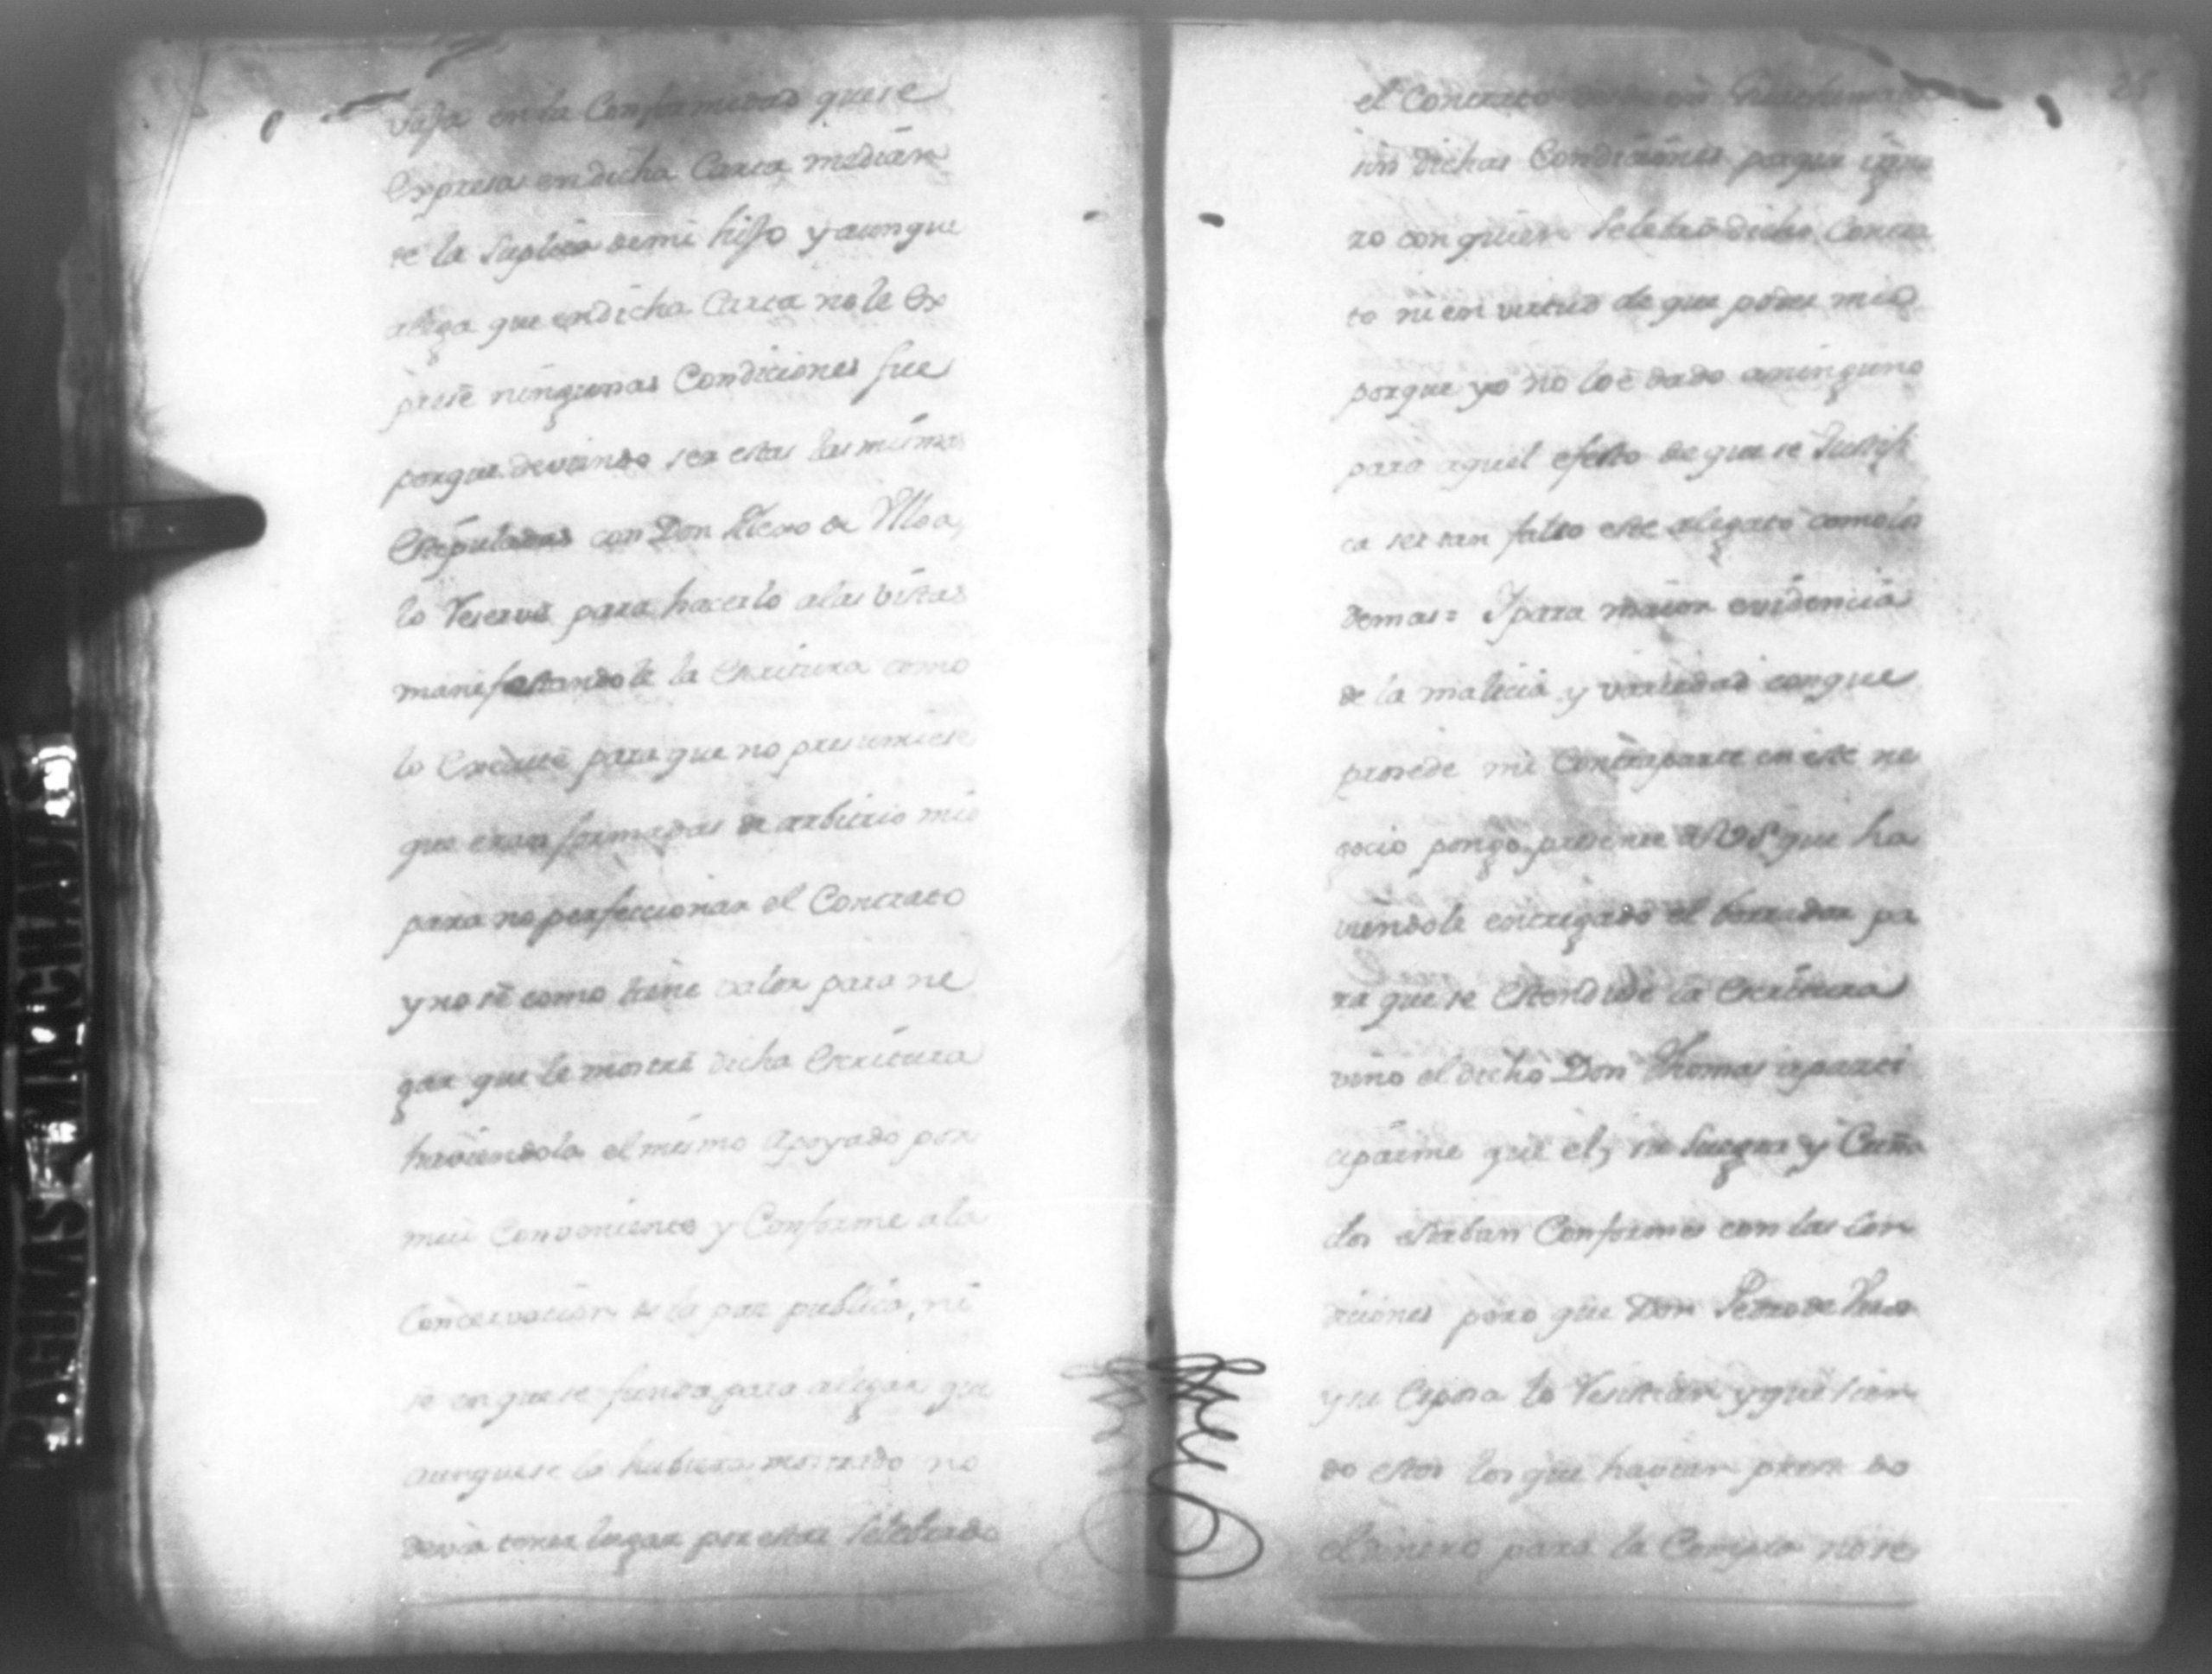 vaja en la Conformidad que se
Expresa en dicha Carta median
te la Suplica de mi hijo y aunque
alega que en dicha Carta no le Ex
presé ningunas Condiciones fue
porque deviendo ser estas las mismas
Estipuladas con Don de Ulloa,
lo Reservé para hacerlo a las vistas
manifestandole la Escritura como
lo Executé para que no presumiese
que eran formadas de arbitrio mio
para no perfeccionar el Contrato
y no sé como tiene valor para ne
gar que le mostré dicha Escritura
haviendola el mismo apoyado por
mui Conveniente y Conforme a la
Concervacion de la paz publica, ni
sé en que se funda para alegar que
aunque se la hubiera mostrado no
devia tener lugar por estar Selebrado
25
el Contrato
sin dichas Condiciones porque igno
ro con quien Selebró dicho Contra
to ni en virtud de que poder mio
porque yo no lo é dado a ninguno
para aquel efecto de que se Justifi
ca ser tan falso este alegato como los
demas = Y para maior evidencia
de la malicia y variedad con que
prosede mi Contraparte en este ne
gocio pongo presente a VS que ha
viendole entregado el borrador pa
ra que se Estendiese la Escritura
vino el dicho Don Thomas a parti
ciparme que el, su Suegra y Cuña
dos estaban Conformes con las Con
diciones pero que Don Pedro de
y su Esposa lo Resistian y que sien
do estos los que havian de
el dinero para la Compra no se
PAGINAS MANCHADAS